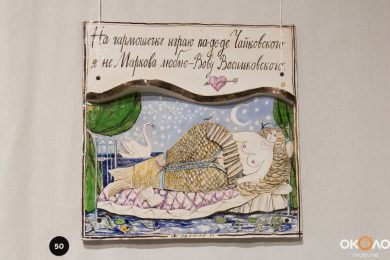 На гармошке играю па-де-де Чайковского
я не Маркова люблю-Вову Васишковского.
50
ОКОЛО